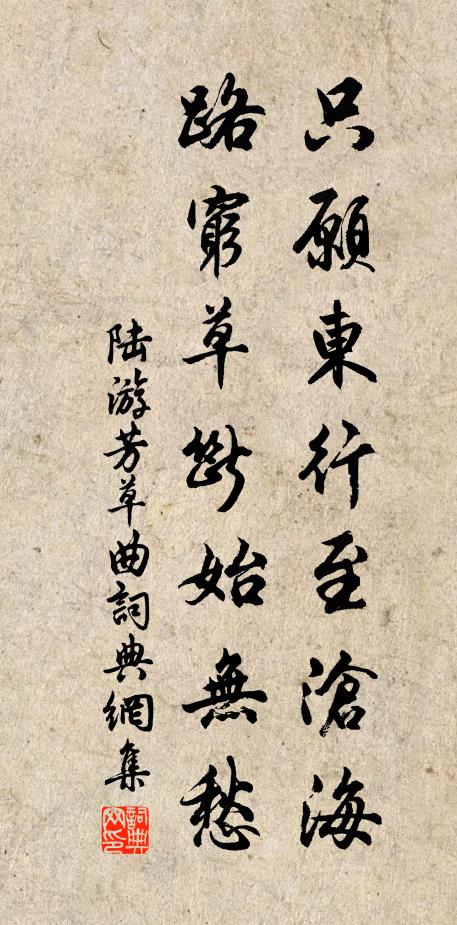 只願東行至滄海
路窮草斷始無愁
陆游芳草曲詞典網集
詞典网印